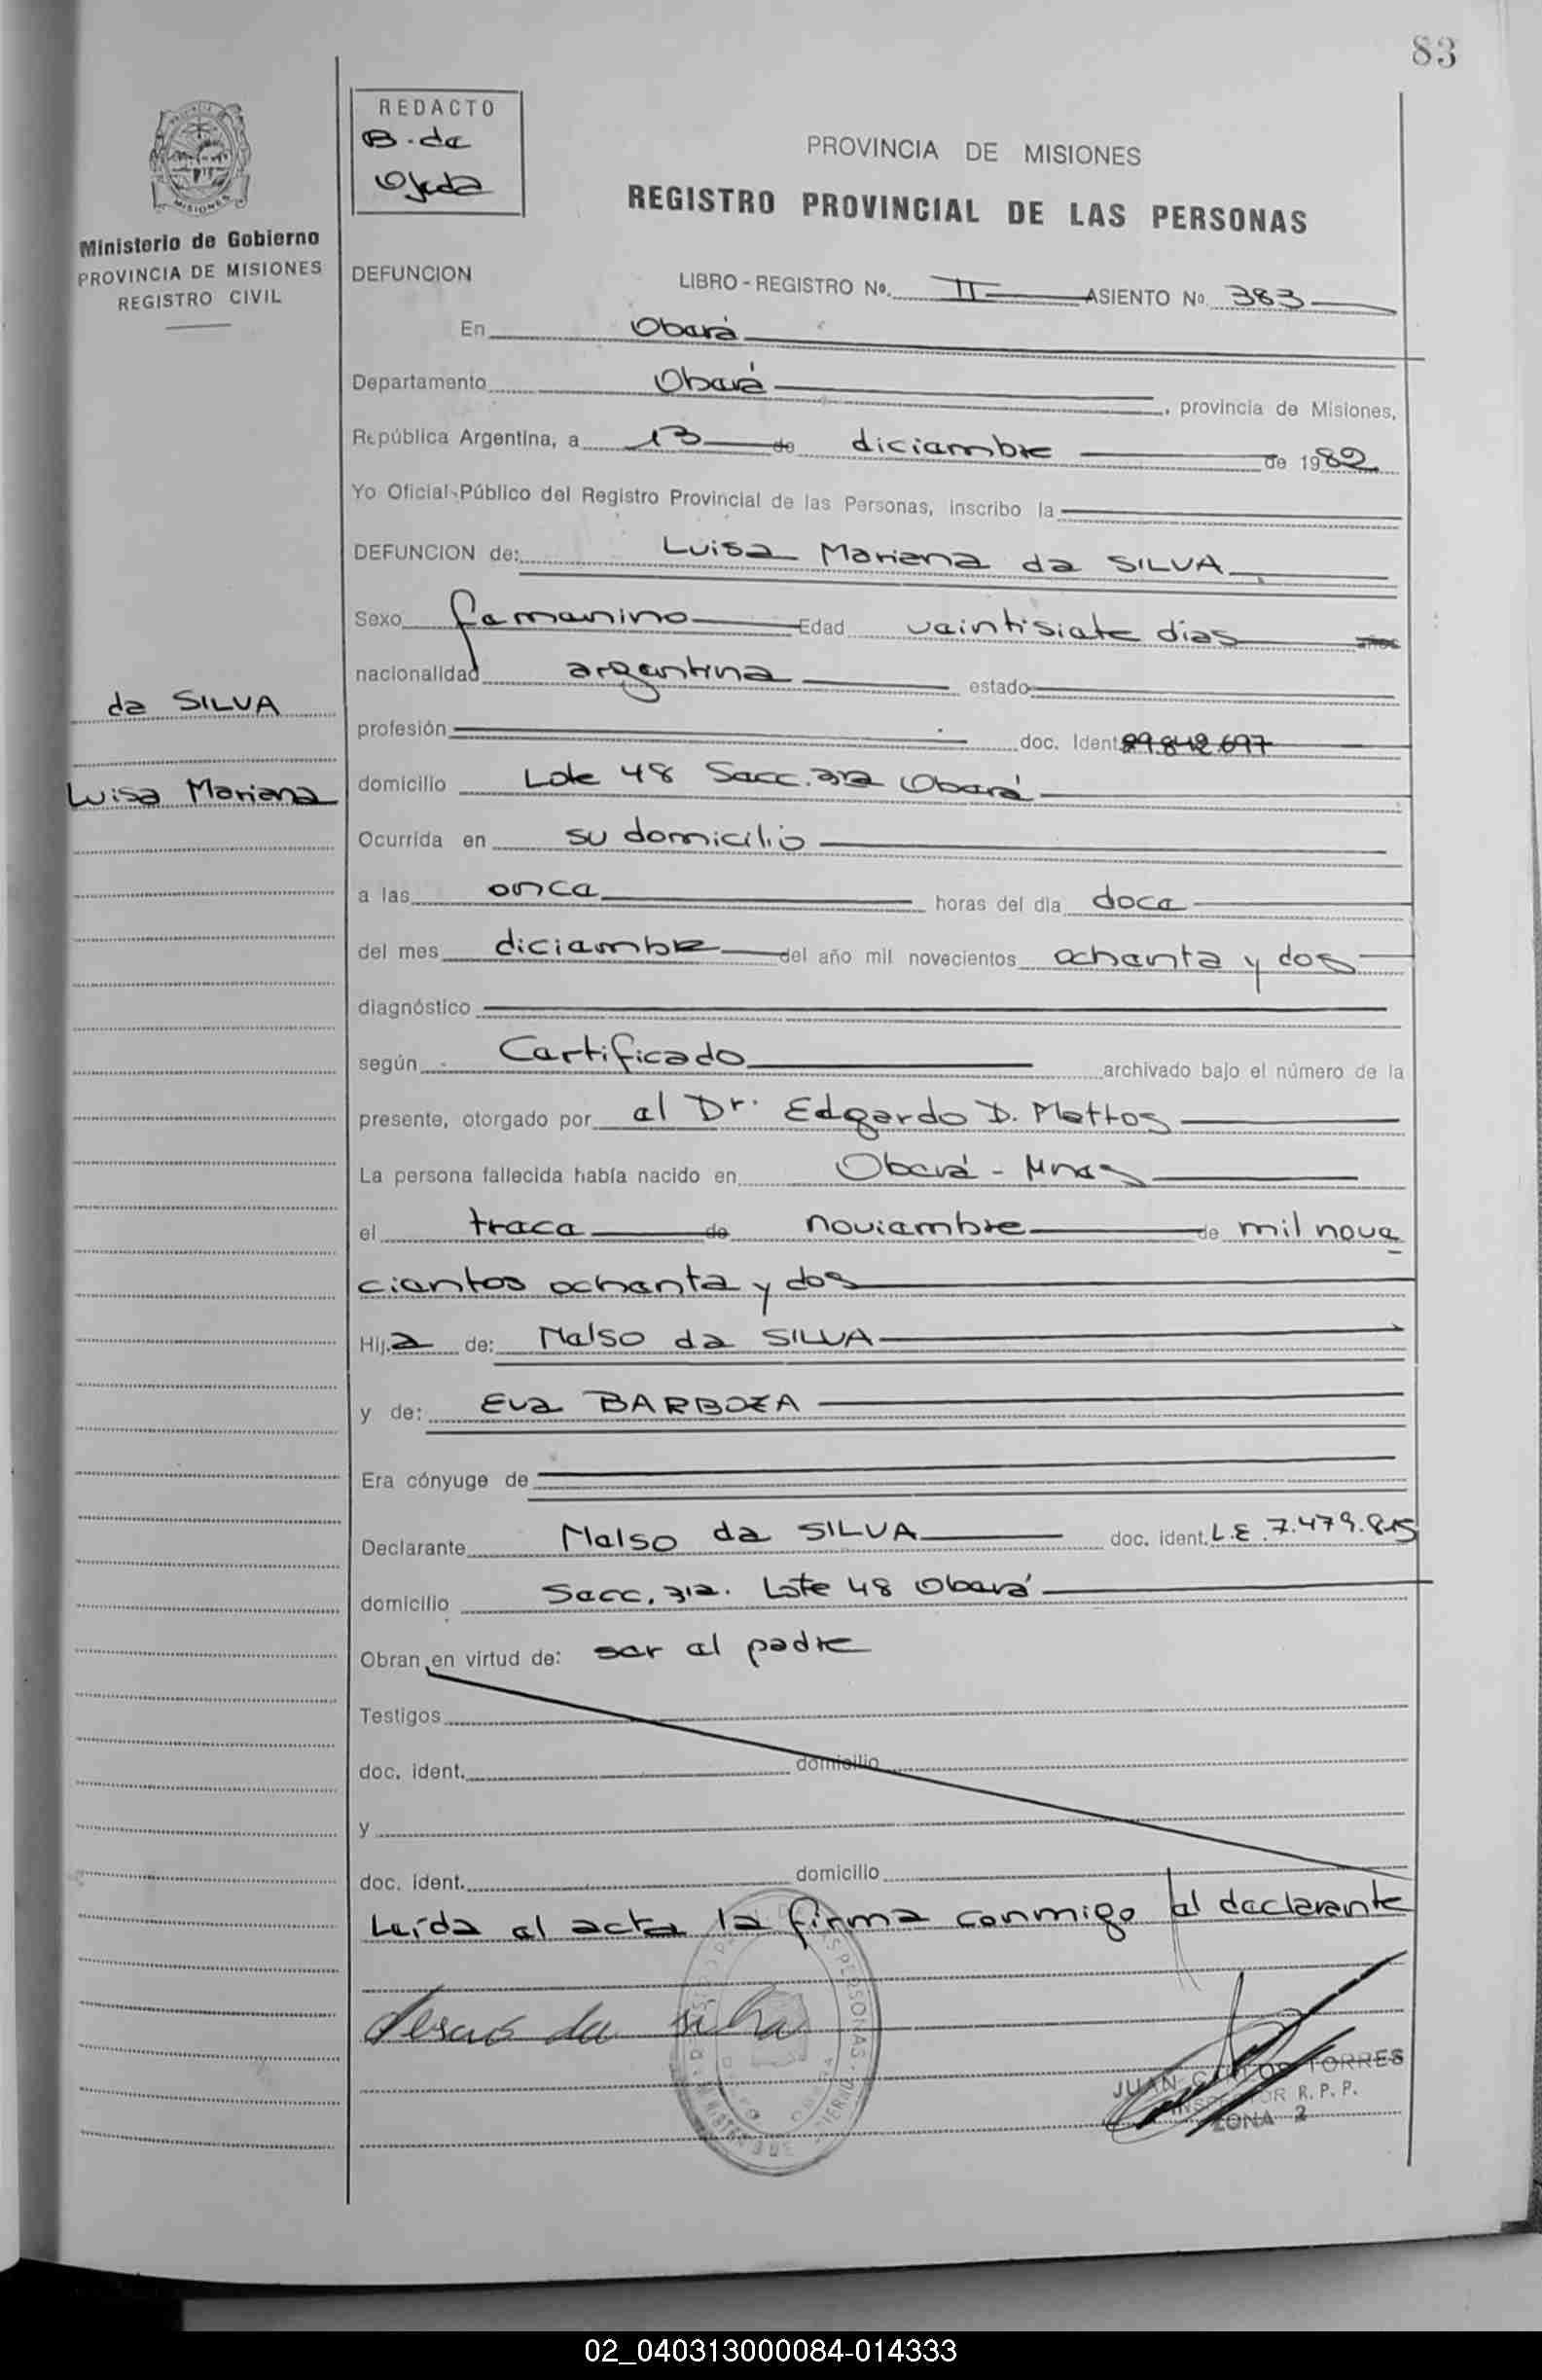 83
REDACTO
B. de
Ojeda
MISIONES
Ministerio de Gobierno
PROVINCIA DE MISIONES
REGISTRO CIVIL
PROVINCIA DE MISIONES
REGISTRO PROVINCIAL DE LAS PERSONAS
DEFUNCION LIBRO - REGISTRO Nº. II ASIENTO Nº 383
En Oberá
Departamento Oberá, provincia de Misiones,
República Argentina, a 13 de diciembre de 1982
Yo Oficial Público del Registro Provincial de las Personas, inscribo la
DEFUNCION de: Luisa Mariana da SILVA
Sexo femenino Edad veintisiete días años
nacionalidad argentina estado
da SILVA
profesión doc. Ident. 29.842.697
Luisa Mariana
domicilio Lote 48 Secc. 3ra Oberá
Ocurrida en su domicilio
a las once horas del día doce
del mes diciembre del año mil novecientos ochenta y dos
diagnóstico
según Certificado archivado bajo el número de la
presente, otorgado por el Dr. Edgardo D. Mattos
La persona fallecida había nacido en Oberá - Mnes
el trece de noviembre de mil nove
cientos ochenta y dos
Hija de: Nelso da SILVA
y de: Eva BARBOZA
Era cónyuge de
Declarante Nelso da SILVA doc. ident. L.E. 7.479.815
domicilio Secc. 3ra. Lote 48 Oberá
Obran en virtud de: ser el padre
Testigos
doc. ident. domicilio
y
doc. ident. domicilio
Leída el acta la firma conmigo el declarante
da silva
JUAN CARLOS TORRES
INSPECTOR R. P. P.
ZONA 2
02_040313000084-014333